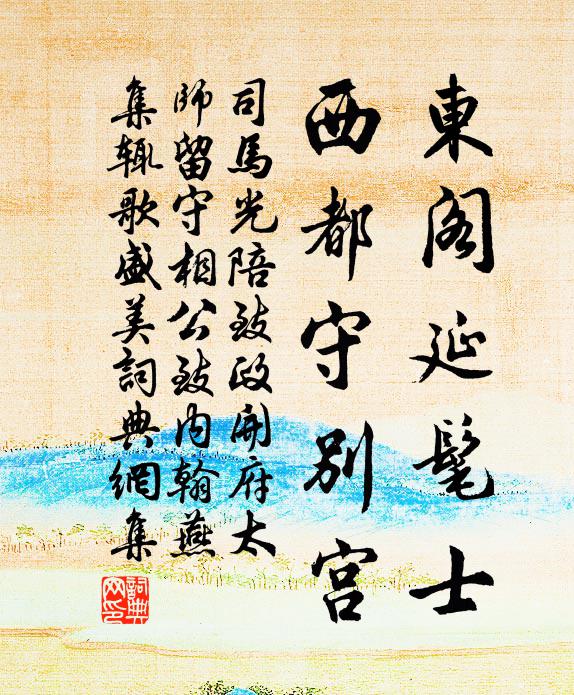 東閣延髦士
西都守別宮
司馬光陪致政開府太
師留守相公致內翰燕
集輒歌盛美詞典網集
詞典
文印